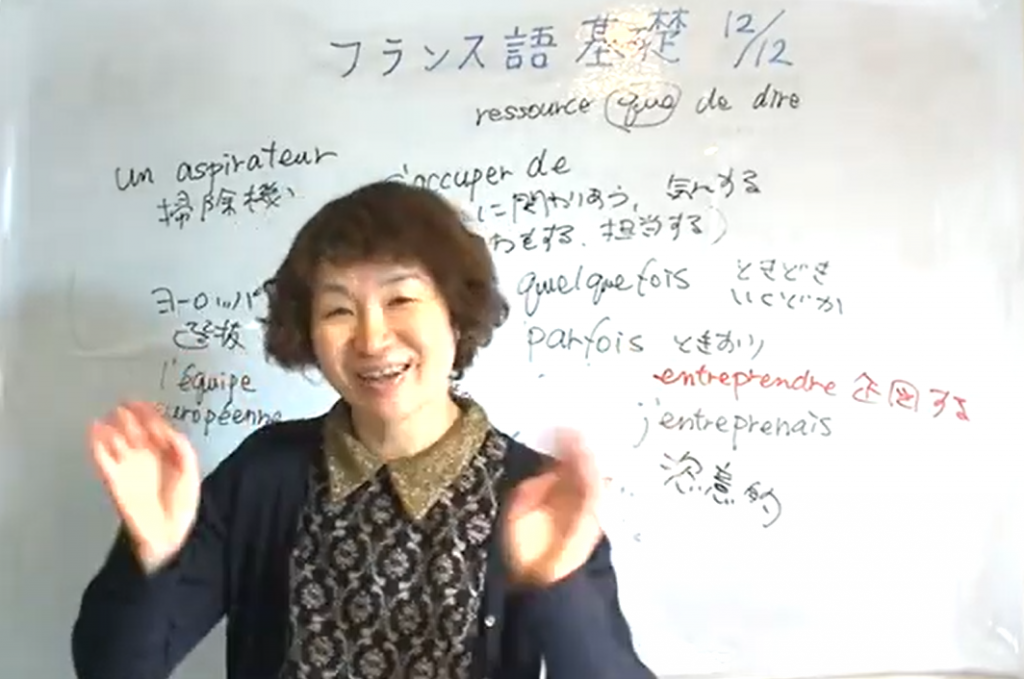 フランス語 基礎 12/12
ressource que de dire
un aspirateur
掃除機
s'occuper de
に関わりあう、気にする
をする、担当する)
quelquefois ときどき
いくどか
parfois ときおり
ヨーロッパ
選抜
l'équipe
européenne
entreprendre 企図する
j'entreprenais
恣意的